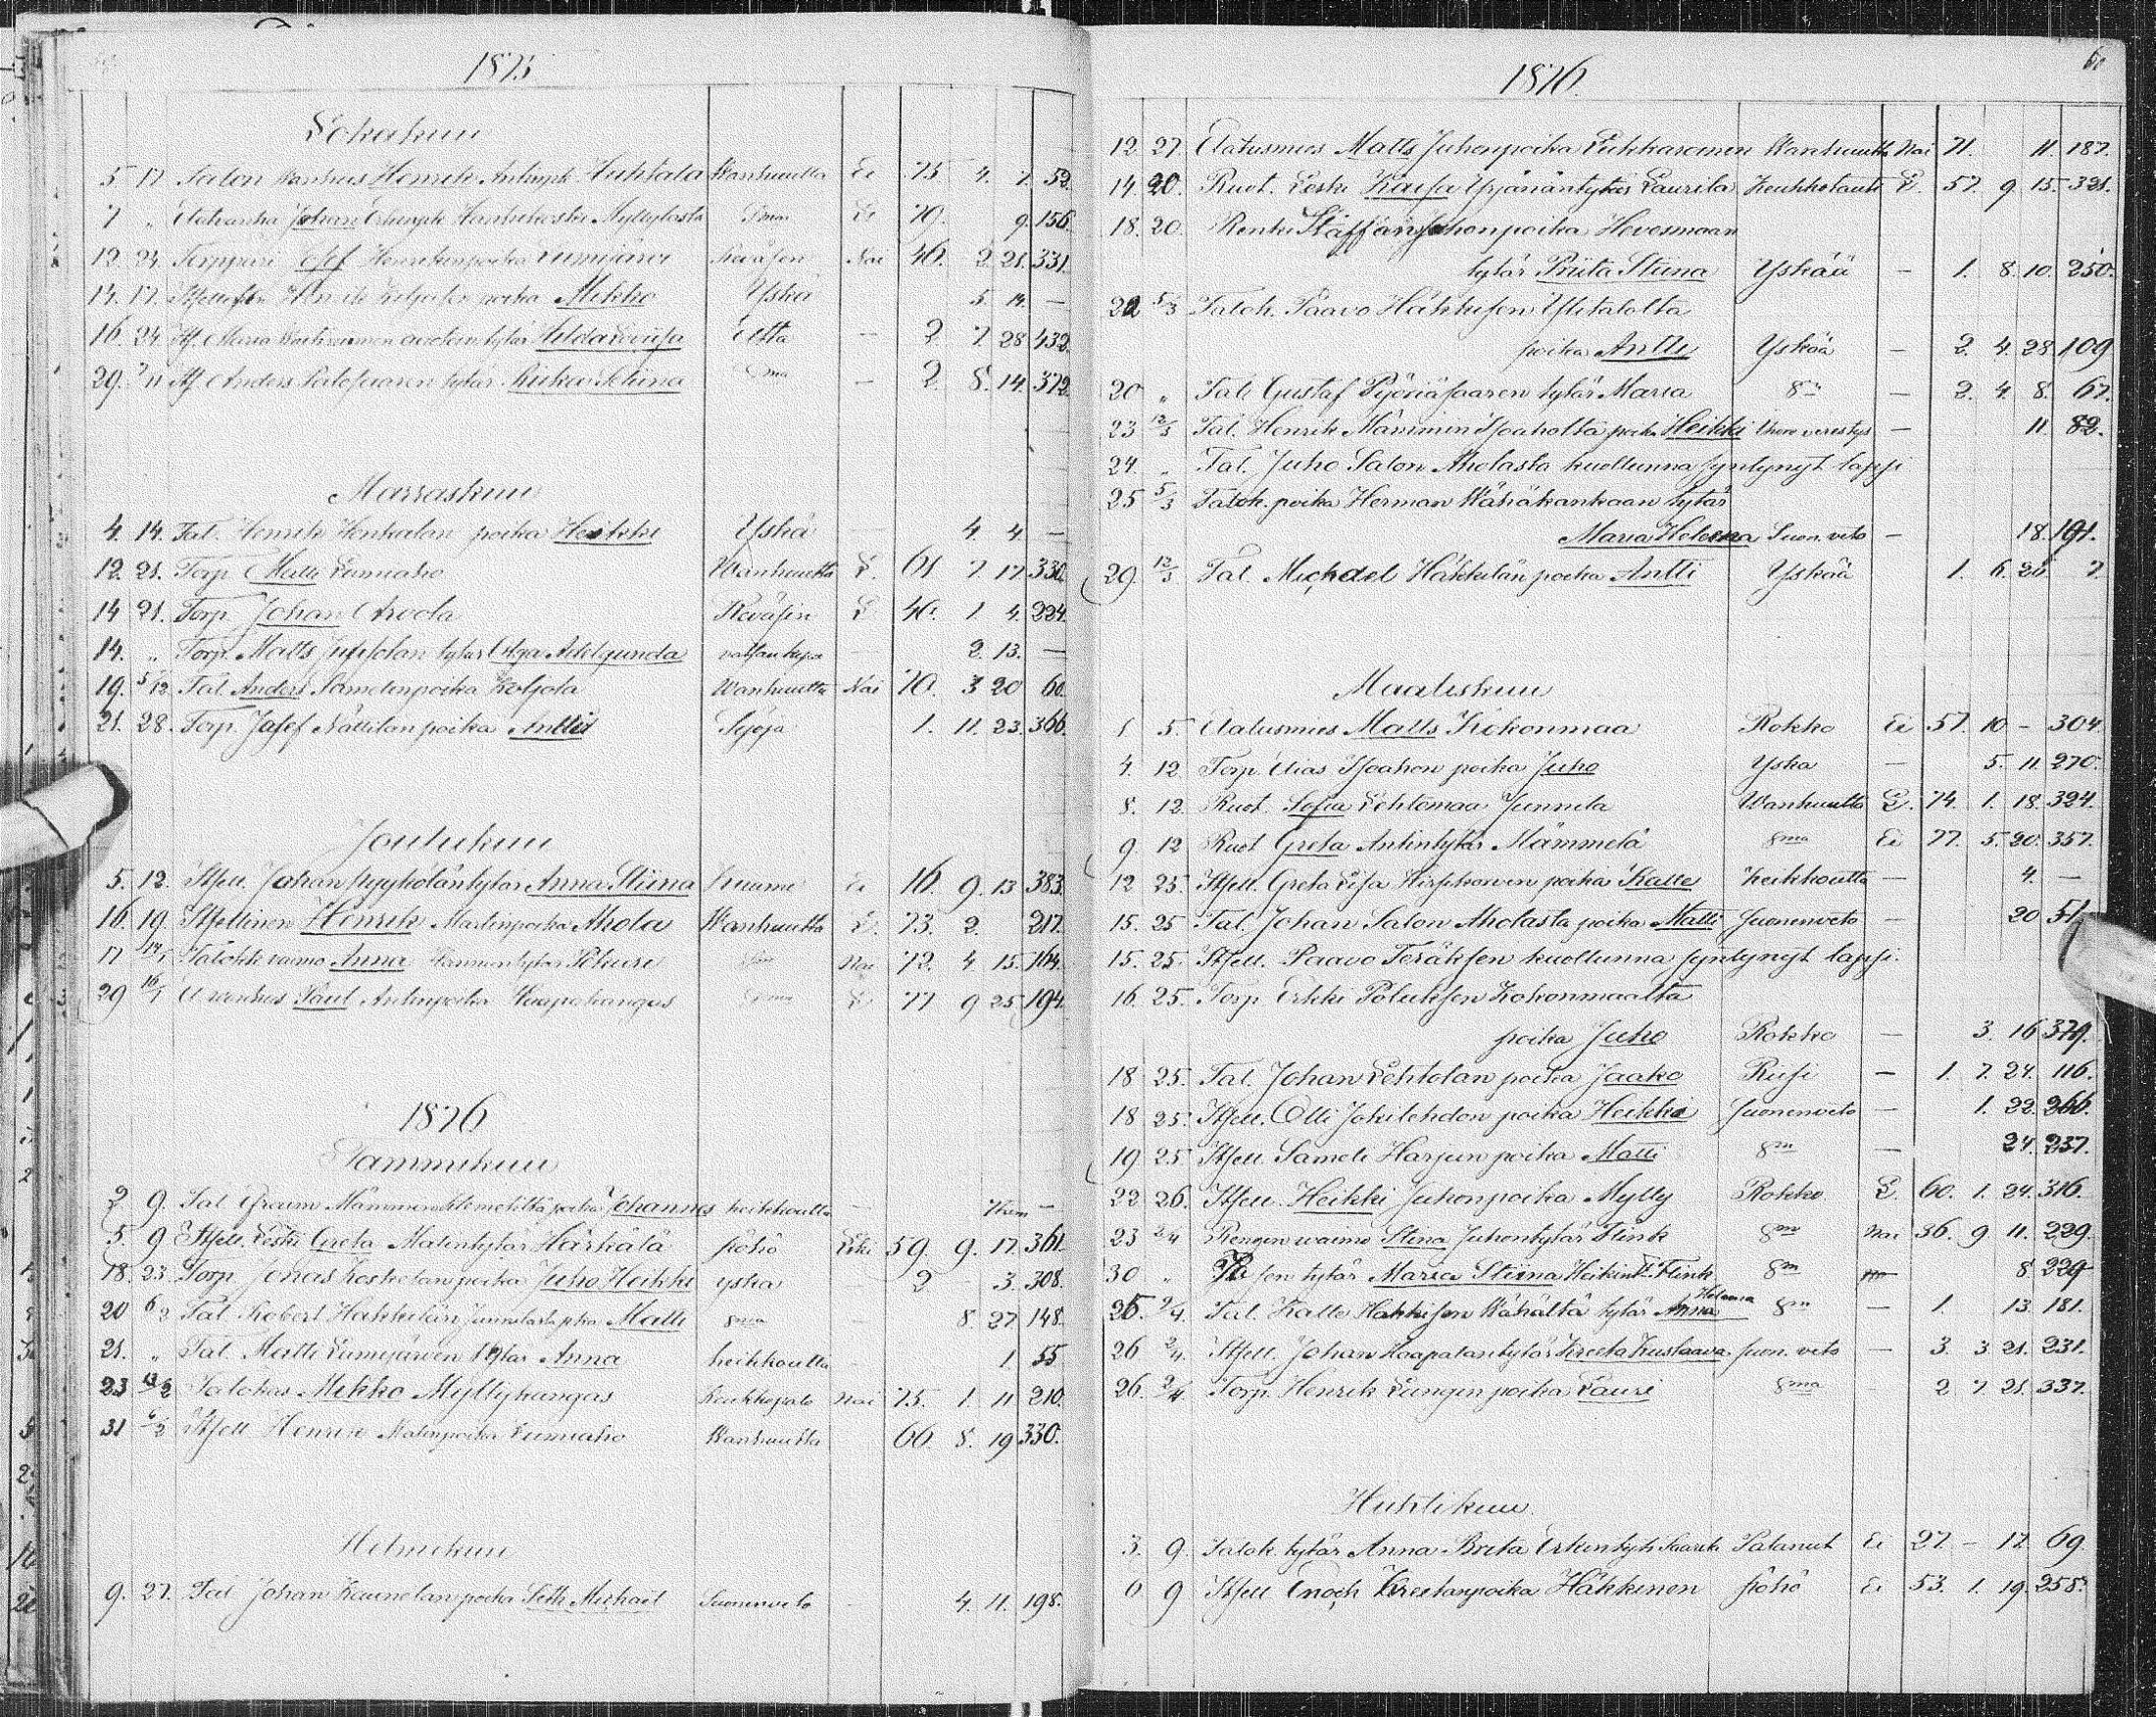 1875
Lokakuu
5 17 Talon vanhus Henrik Antinpk Huhtala Wanhuutta Ei 75 4. 7. 52.
7 „ Johan Erkinpk Myllylästä Dma Le 70. 9. 156.
12 24. Torppari Josef Henrikinpoika Lumijärvi Keväjen Nai 46. 2. 21. 331.
14. 17. poika Mikko Yskä 5. 14. —
16. 24. Itf. Maria tytär Hilda Lovisa — 2 7 28 432.
29. 7/11 Itf Anders Palosaaren tytär Kaisa Stiina Dma — 2. 8. 14. 372.
Marraskuu
4. 14. Tal. Henrik Honkalan poika Heikki Yskä — 4 4. —
12. 21. Torp. Matti Lumiaho Wanhuutta L. 61 7 17. 330.
14 21. Torp. Johan Arvola Keväjin L 40. 1 4. 224.
14. „ Torp. Matts Juffolan tytär Olga Adelgunda — 2. 13. —
19. 5/12 Tal. Anders Samelinpoika Koljola Wanhuutta Nai 70. 3 20 60.
21. 28. Torp. Josef Nättilän poika Antti Syöjä 1. 11. 23. 366.
Joulukuu
5. 12. Itsell. Johan Pyykölän tytär Anna Stiina Kuume Ei 16. 9. 13 383.
16. 19. Itsellinen Henrik Martinpoika Ahola Wanhuutta L. 73. 2. 217.
17 14/1 Talokk. vaimo Anna Hermanintytär Pekuri Dma Nai 72. 4 15. 164.
29 16/1 Paul Antinpoika Haapakangas Dma L 77 9 25. 194.
1876
Tammikuu
2 9. Tal Efraim Mämmin poika Johannes heikkoutta —
5. 9 Itsell. Leski Greta Matintytär Härkälä Pöhö Leki 59. 9. 17. 361.
18. 23. Torp. Jonas Koskelan poika Juho Heikki yskä 2 3. 308.
20 6/2 Tal. Robert Hakkilän pka Matti Dma — 8. 27. 148.
21. „ Tal. Matti Lumijärven tytär Anna heikkoutta — 1. 55.
23 13/2 Talokas Mikko Myllykangas Keuhkopolo Nai 75. 1. 11 210.
31 6/2 Itsell Henrik Matinpoika Lumiaho Wanhuutta 66 8. 19 330.
Helmikuu
9. 27. Tal Johan Kaunolan poika Seth Michail Suonenveto 4. 11. 198.
1876.
60
12 27. Elatusmies Matts Juhonpoika Pukkaroinen Wanhuutta Nai 71. 11. 187.
14 20. Ruot. Leski Kaisa Yrjänäntytär Laurila Keuhkotauti L. 57. 9 15. 321.
18. 20. Renki Staffan Juhonpoika Hevosmaan
tytär Priita Stiina Yskää — 1. 8. 10. 250.
20 5/3 Talok. Paavo Häkkisen Ylitalolta
poika Antti Yskää — 2. 4. 28. 109
20 „ Tal. Gustaf Pyöriäsaaren tytär Maria Dm — 2. 4. 8. 67.
23 12/3 Tal. Henrik Mämmin Isoaholta poika Heikki verestys — 11. 82.
24. „ Tal. Juho Salon Aholasta kuollunna syntynyt lapsi
25 5/3 Talok. poika Herman Wähäkankaan tytär
Maria Helena Suon. veto — 18. 191.
29. 12/3 Tal. Michael Häkkilän poika Antti Yskää 1. 6. 28. 7.
Maaliskuu
1 5. Elatusmies Matts Kokonmaa Rokko Ei 57. 10 — 304.
4. 12. Torp. Elias Isoahon poika Juho Yskä — 5. 11. 270.
8. 12. Ruot. Sofia Lehtomaa Junnila Wanhuutta L. 74. 1. 18. 324.
9. 12 Ruot Greta Antintytär Mämmelä Dma Ei 77. 5. 20. 357.
12 25. Itsell. Greta Lisa Hirsikorven poika Kalle heikkoutta — 4. —
15. 25 Tal. Johan Salon Aholasta poika Matti Suonenveto — 20 51.
15. 25. Itsell. Paavo Teräksen kuollunna syntynyt lapsi.
16. 25. Torp. Erkki Poluksen Kokonmaalta
poika Juho Rokko — 3. 16 379.
18 25. Tal. Johan Lehtolan poika Jaako Riisi — 1. 7. 24. 116.
18 25. Itsell. Olli Jokilehdon poika Heikki Suonenveto — 1. 22. 266.
19 25 Itsell. Sameli Harjun poika Matti Dm — 24. 237.
22 26. Itsell. Heikki Juhonpoika Mylly Rokko L. 60. 1. 24. 316.
23 2/4 Rengin waimo Stina Juhontytär Flink Dm Nai 36. 9 11. 229.
30 „ tytär Maria Stiina Heikint. Flink Dm 8. 229
25. 2/4. Tal. Kalle Hakkisen Wähältä tytär Anna Helena Dm — 1. 13. 181.
26 2/4. Itsell. Johan Haapalan tytär Kreeta Kustaava Suon. veto — 3. 3 21. 231.
26. 2/4. Torp. Henrik Lungin poika Lauri Dma 2 7 21. 337.
Huhtikuu.
3. 9. Talok. tytär Anna Brita Erkintytär Saari Palanut Ei 27. — 17. 69.
6 9 Itsell Enoch Kreetanpoika Häkkinen Pöhö Ei 53. 1. 19. 258.